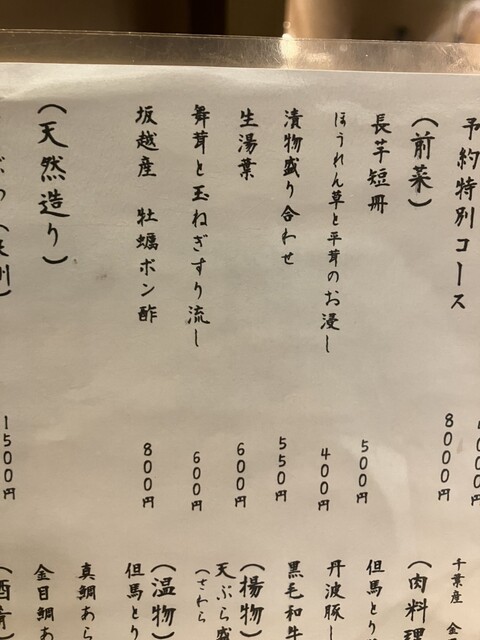 予約特別コース
8000円
(前菜)
長芋短冊 500円
ほうれん草と平茸のお浸し 400円
漬物盛り合わせ 550円
生湯葉 600円
舞茸と玉ねぎすり流し 600円
坂越産 牡蠣ポン酢 800円
(天然造り)
1500円
千葉産 金
(肉料理
但馬とり
丹波豚
黒毛和牛
(揚物)
天ぷら盛
(さわら
(温物)
但馬とり
真鯛あら
金目鯛あ
(酒肴